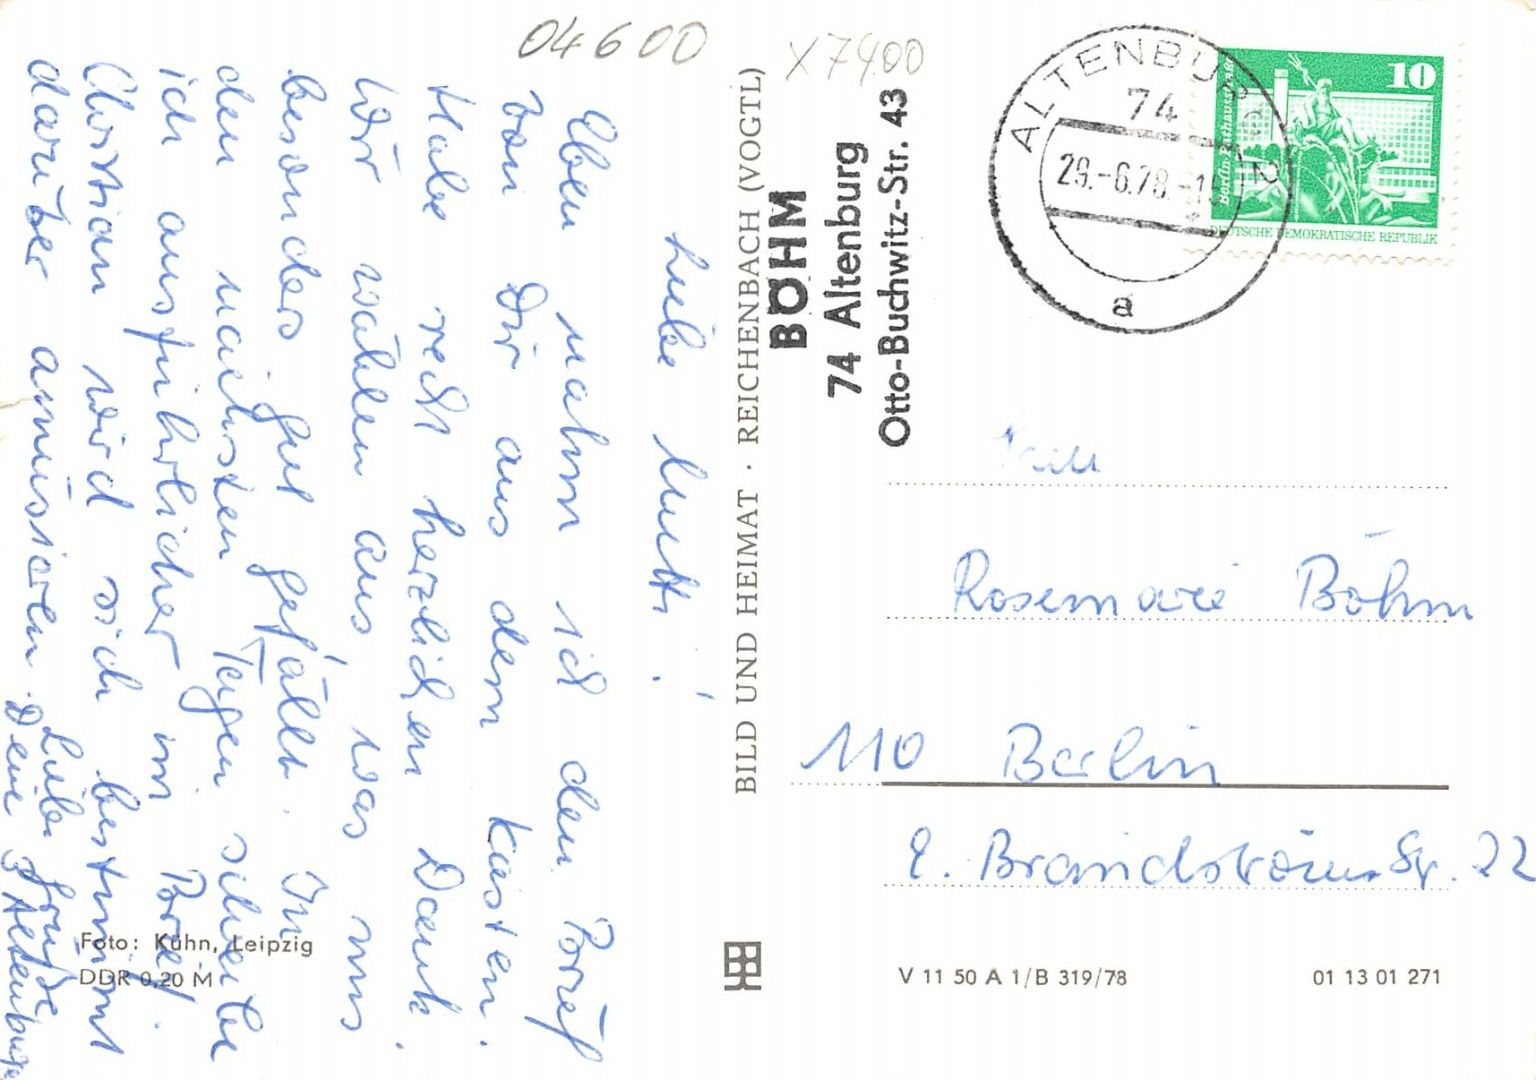 04600
X7400
Liebe Mutti!
Eben nahm ich den Brief
von Dir aus dem Kasten.
Habe recht herzlichen Dank.
Wir wählen aus, was uns
besonders gut gefällt. In
den nächsten Tagen schreibe
ich ausführlicher im Brief.
Christian wird sich bestimmt
darüber amüsieren.
Liebe Grüße
Deine 3 Altenburger
Foto: Kühn, Leipzig
DDR 0,20 M
BILD UND HEIMAT · REICHENBACH (VOGTL)
BÖHM
74 Altenburg
Otto-Buchwitz-Str. 43
ALTENBURG 2
74
29.-6.78.-15
a
10
Berlin-Rathausstraße
DEUTSCHE DEMOKRATISCHE REPUBLIK
Frau
Rosemarie Böhm
110 Berlin
E. Brandström Str. 22
V 11 50 A 1/B 319/78
01 13 01 271